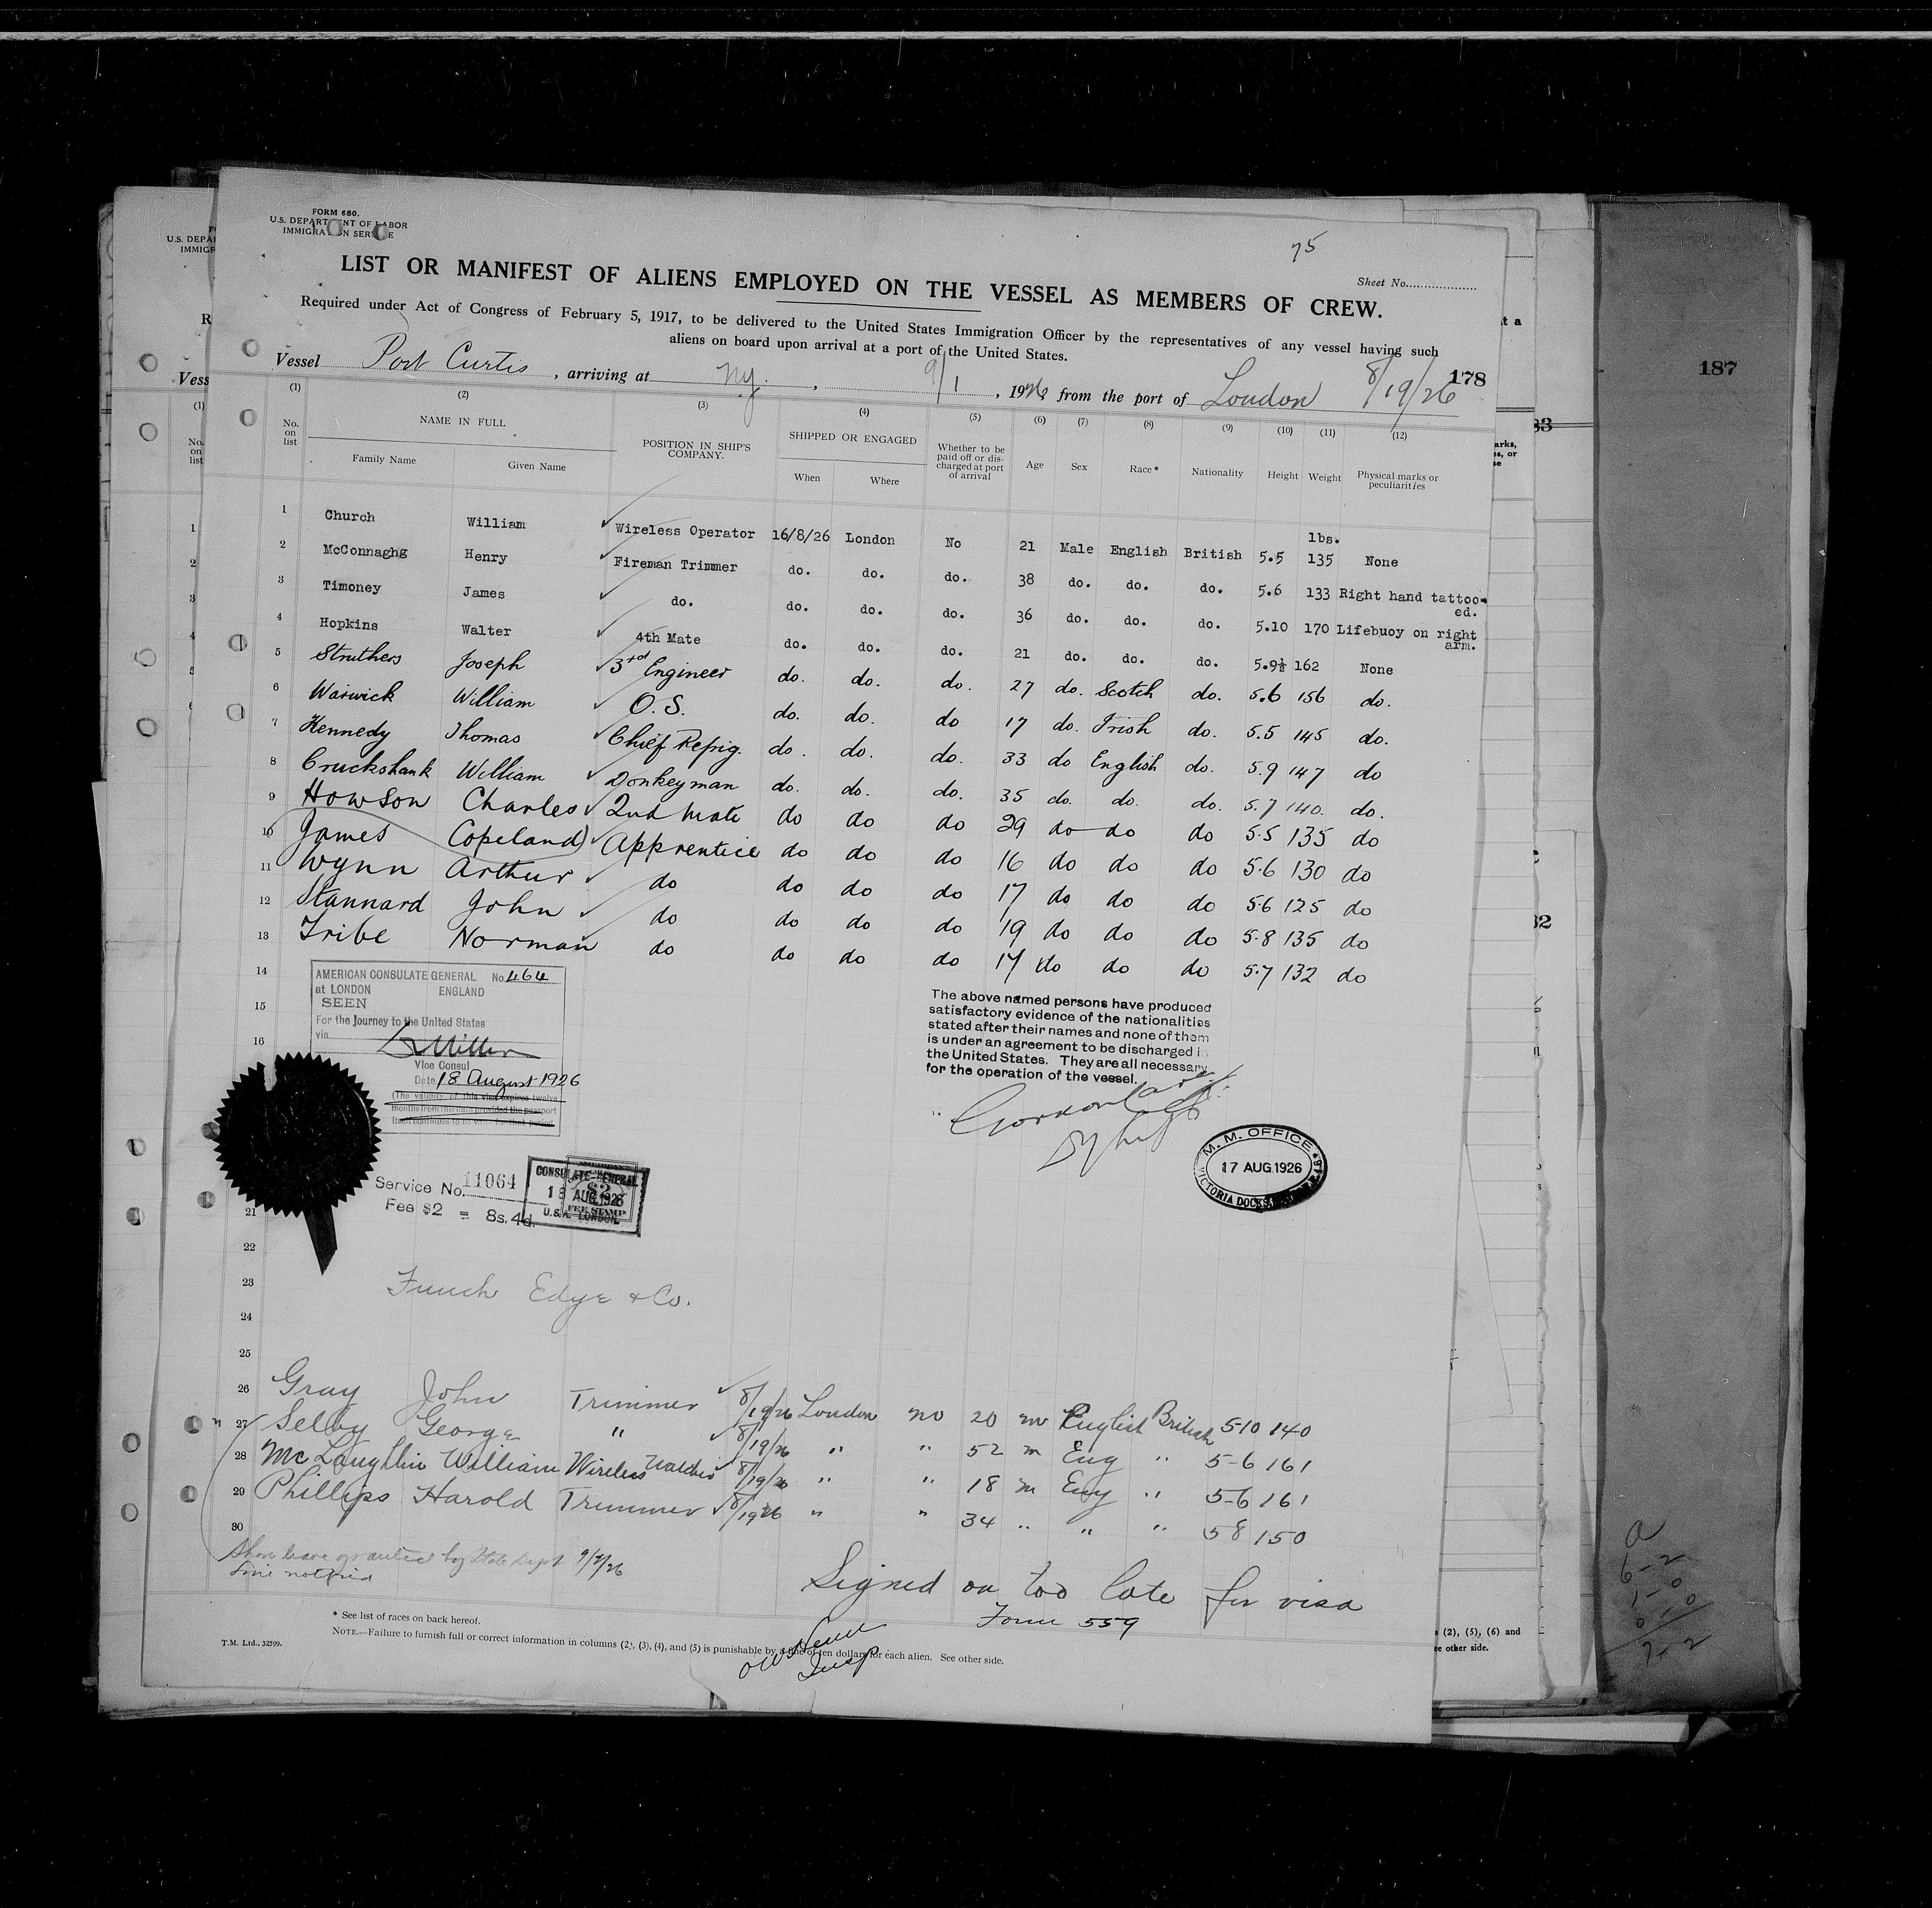 FORM 680.
U.S. DEPARTMENT OF LABOR
IMMIGRATION SERVICE
75
Sheet No.
LIST OR MANIFEST OF ALIENS EMPLOYED ON THE VESSEL AS MEMBERS OF CREW.
Required under Act of Congress of February 5, 1917, to be delivered to the United States Immigration Officer by the representatives of any vessel having such
aliens on board upon arrival at a port of the United States.
Vessel Port Curtis, arriving at N.Y., 9/1, 1926 from the port of London 8/19/26
178
187
(1) (2) (3) (4) (5) (6) (7) (8) (9) (10) (11) (12)
No. on list NAME IN FULL Family Name Given Name POSITION IN SHIP'S COMPANY. SHIPPED OR ENGAGED When Where Whether to be paid off or discharged at port of arrival Age Sex Race* Nationality Height Weight Physical marks or peculiarities
lbs.
1 Church William Wireless Operator 16/8/26 London No 21 Male English British 5.5 135 None
2 McConnaghg Henry Fireman Trimmer do. do. do. 38 do. do. do. 5.6 133 Right hand tattoo-ed.
3 Timoney James do. do. do. do. 36 do. do. do. 5.10 170 Lifebuoy on right arm.
4 Hopkins Walter 4th Mate do. do. do. 21 do. do. do. 5.9½ 162 None
5 Struthers Joseph 3rd Engineer do. do. do. 27 do. Scotch do. 5.6 156 do.
6 Warwick William O.S. do. do. do 17 do. Irish do. 5.5 145 do.
7 Kennedy Thomas Chief Refrig. do. do. do. 33 do English do. 5.9 147 do
8 Cruckshank William Donkeyman do. do. do. 35 do. do. do. 5.7 140. do.
9 Howson Charles 2nd Mate do do do 29 do do do 5.5 135 do
10 James Copeland Apprentice do do do 16 do do do 5.6 130 do
11 Wynn Arthur do do do do 17 do do do 5.6 125 do
12 Stannard John do do do do 19 do do do 5.8 135 do
13 Tribe Norman do do do do 17 do do do 5.7 132 do
14
15
16
AMERICAN CONSULATE GENERAL No. 464
at LONDON ENGLAND
SEEN
For the Journey to the United States
via
Vice Consul
Date 18 August 1926
(The validity of this visa expires twelve
months from this date provided the passport
itself continues to be valid for that period
The above named persons have produced
satisfactory evidence of the nationalities
stated after their names and none of them
is under an agreement to be discharged in
the United States. They are all necessary
for the operation of the vessel.
M. M. OFFICE
17 AUG 1926
VICTORIA DOCKS
Service No. 11064
Fee $2 = 8s. 4d.
CONSULATE GENERAL
18 AUG 1926
U.S.A. LONDON.
AMERICAN
$2
FEE STAMP
21
22
23
Funch Edye & Co.
24
25
26 Gray John Trimmer 8/19/26 London no 20 m English British 5-10 140
27 Selby George " 8/19/26 " " 52 m Eng " 5-6 161
28 McLaughlin William Wireless Watcher 8/19/26 " " 18 m Eng " 5-6 161
29 Phillips Harold Trimmer 8/19/26 " " 34 " " " 5 8 150
30
Shore leave granted by State Dept 9/2/26
Line notified
Signed on too late for visa
Form 559
Insp
* See list of races on back hereof.
NOTE.—Failure to furnish full or correct information in columns (2), (3), (4), and (5) is punishable by a fine of ten dollars for each alien. See other side.
T.M. Ltd., 32599.
(2), (5), (6) and
other side.